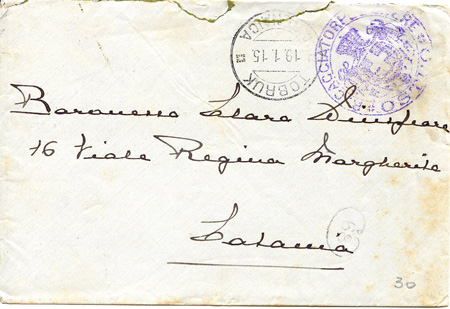 TOBRUK
19.1.15
CACCIATORPEDINIERE
Baronessa Clara
16 Viale Regina Margherita
Catania
30